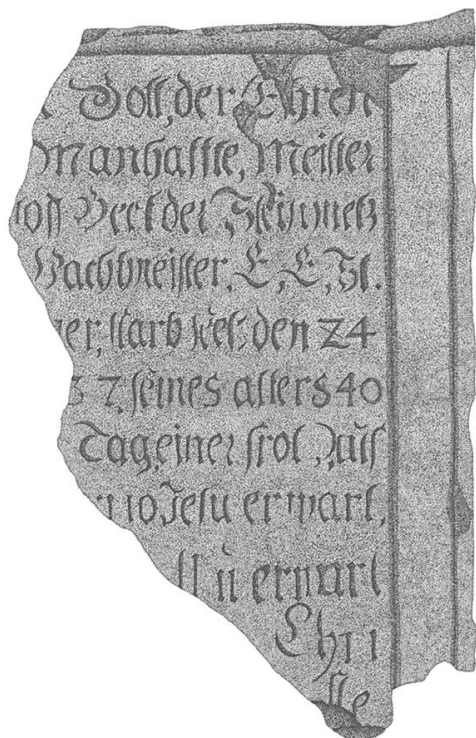 Gott, der Ehren
Manhaffte, Meister
Beck der Steinmetz
E, E, St.
er, starb sel: den 24
3 7 seines alters 40
Tag, einer frol, Auf
Jesu erwart,
erwart
Chri
ste